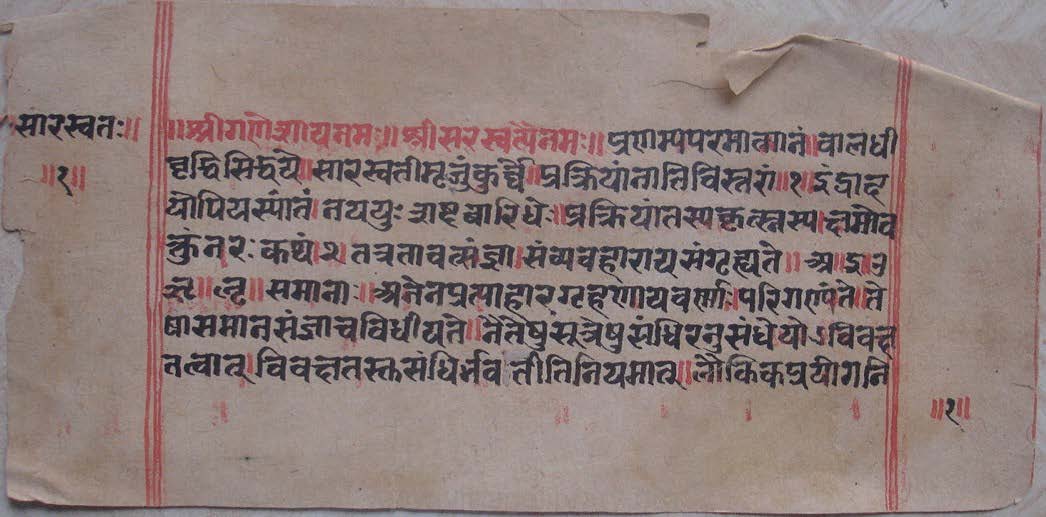 सारस्वतः॥
॥१॥
॥श्रीगणेशायनमः॥श्रीसरस्वत्यैनमः॥प्रणम्यपरमात्मानं।बालधी
वृद्धिसिद्धये॥सारस्वतीमृजुंकुर्वे।प्रक्रियांनातिविस्तरां॥१॥इंद्राद
योपियस्यांतं।नययुःशब्दवारिधेः।प्रक्रियांतस्यकृत्स्नस्य।क्षमोव
क्तुंनरःकथं।२।तत्रतावत्संज्ञा।संव्यवहारायसंगृह्यते॥अ॥इ॥उ
ऋ॥लृ॥समानाः॥अनेनप्रत्याहारग्रहणायवर्णाःपरिगण्यंते।ते
षांसमानसंज्ञाचविधीयते॥नैतेषुसूत्रेषुसंधिरनुसंधेयोऽविवक्षि
तत्वात्।विवक्षितस्तुसंधिर्भवतीतिनियमात्॥लौकिकप्रयोगनि
॥१॥